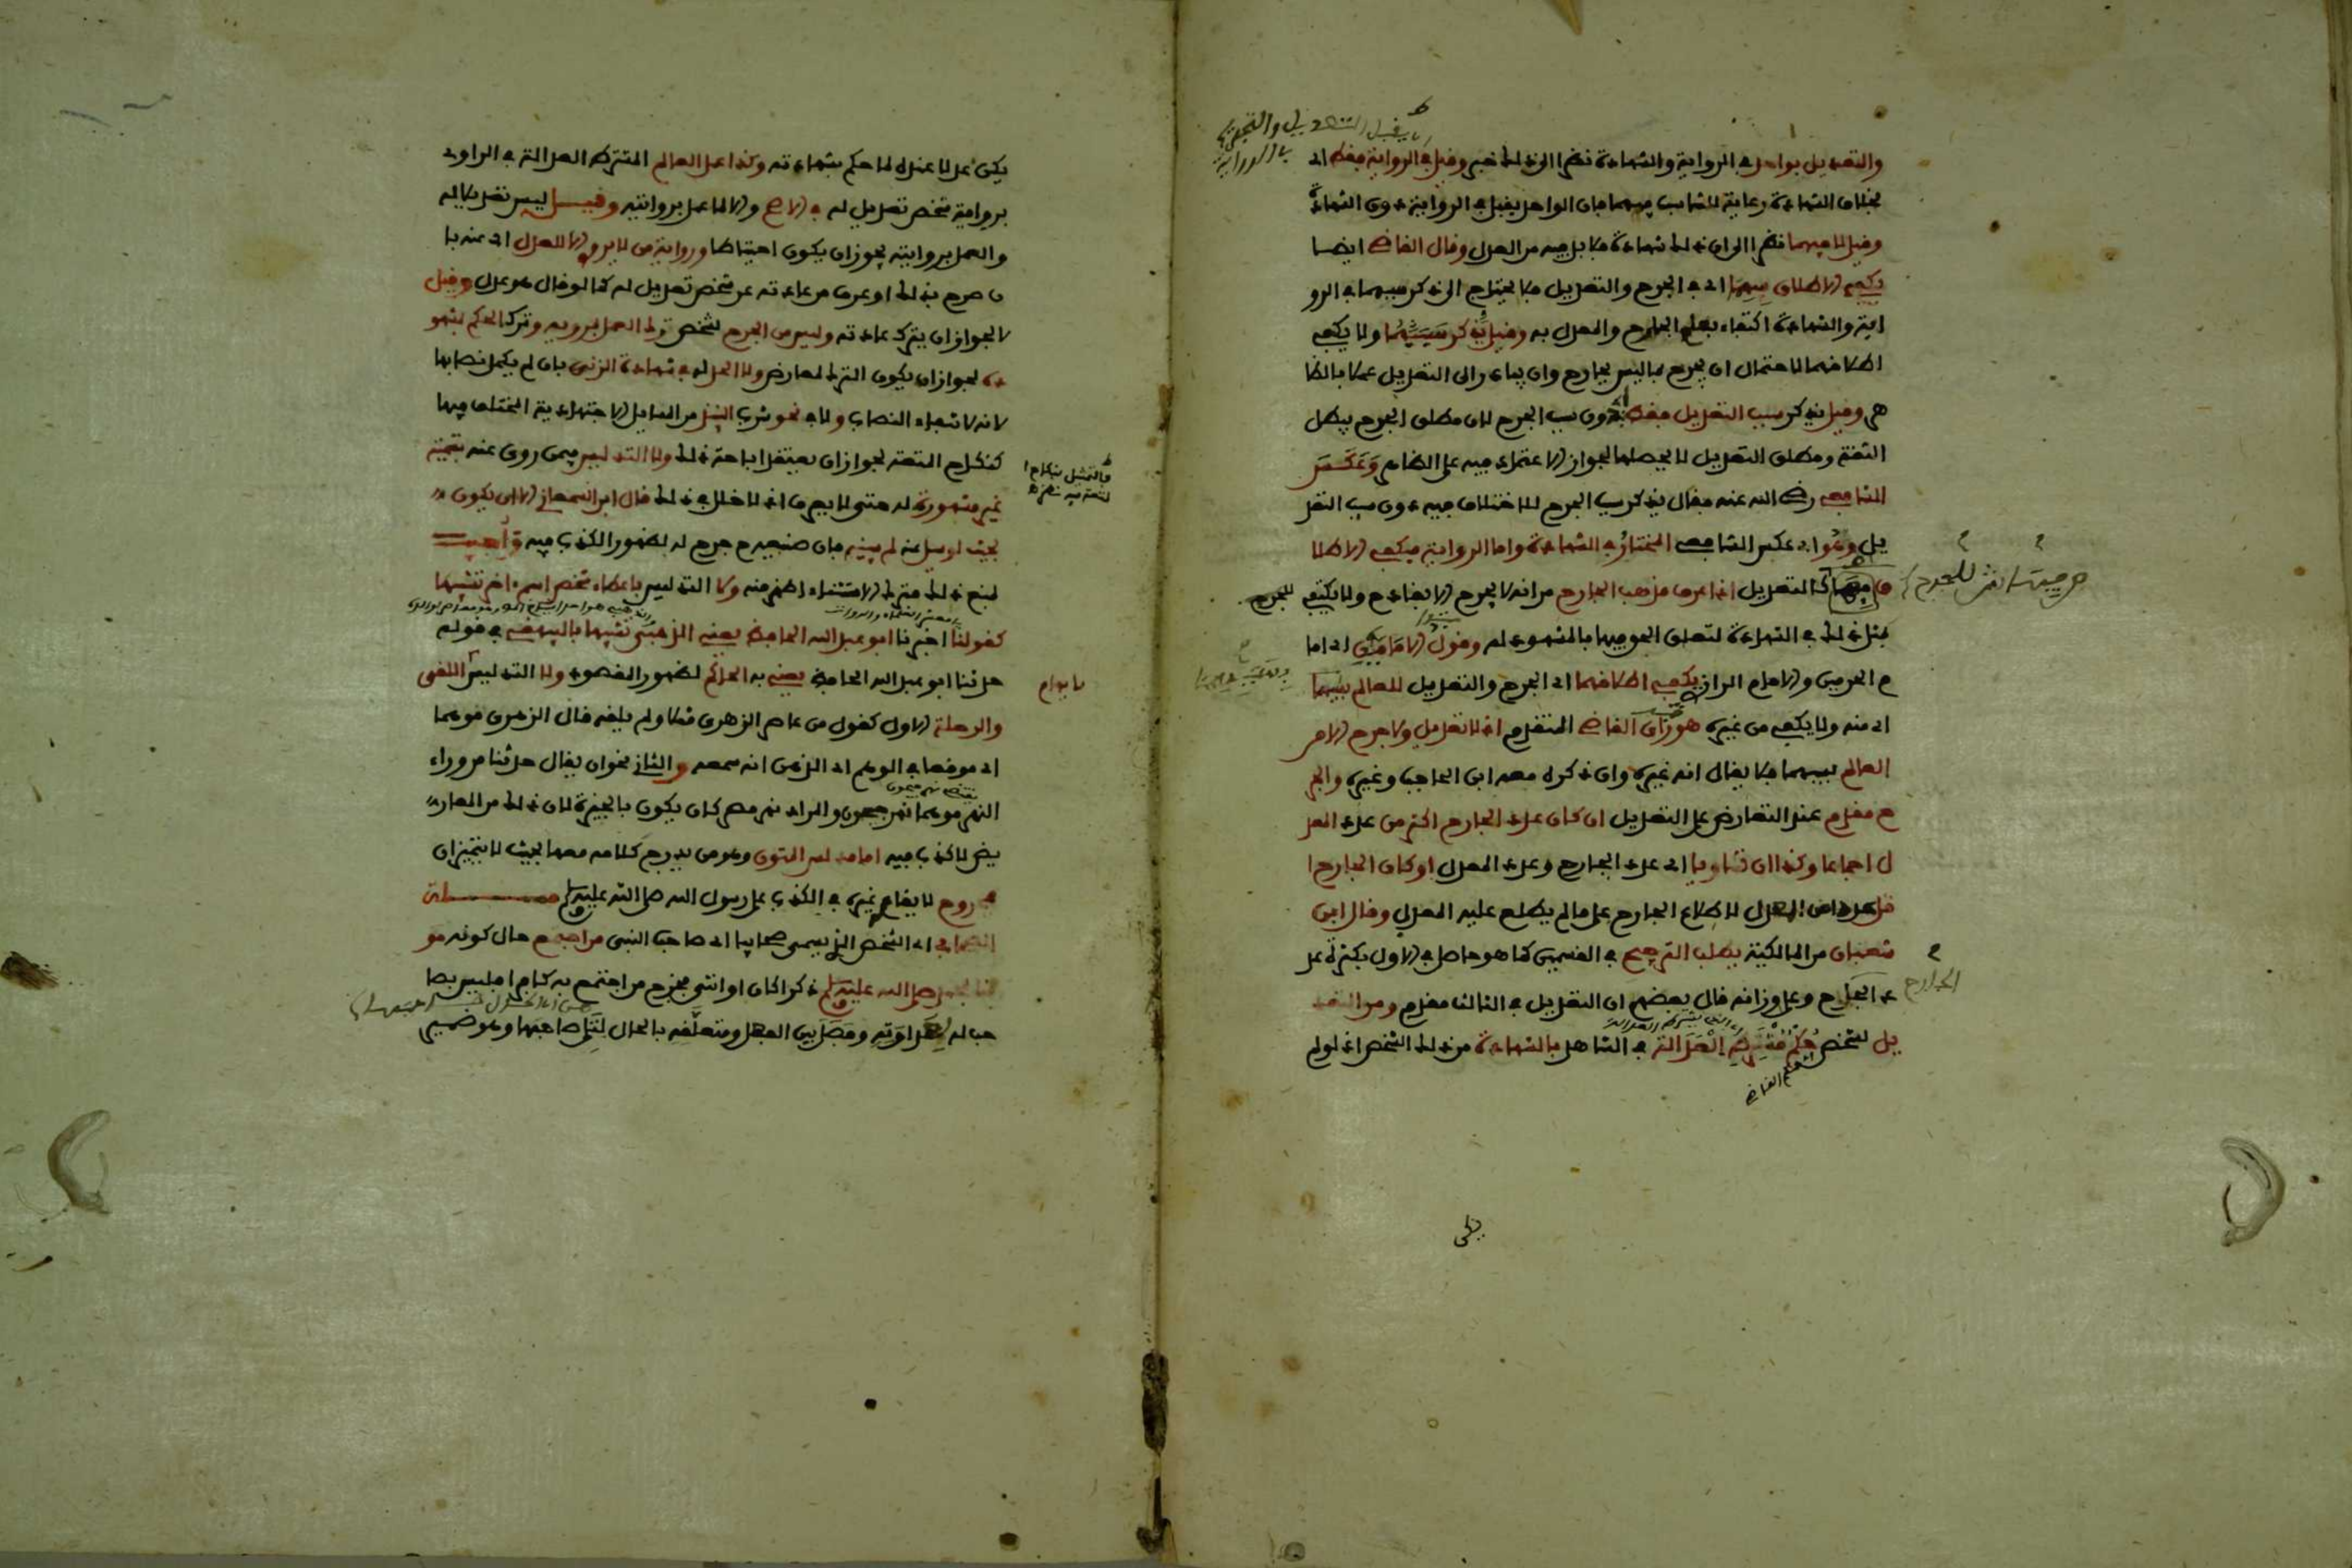 والتعديل بواحد في الرواية والشهادة نظرا الى ان ذلك خبر وقيل في الرواية فقط اى
بخلاف الشهادة رعاية للتناسب فيهما فان الواحد يقبل في الرواية دون الشهادة
وقيل لا فيهما نظرا الى ان ذلك شهادة فلا بد فيه من العدد وقال القاضي ايضا
يكفي الاطلاق فيهما اى في الجرح والتعديل فلا يحتاج الى ذكر سببهما في الرو
اية والشهادة اكتفاء بعلم الجارح والمعدل به وقيل يذكر سببهما ولا يكفي
اطلاقهما لاحتمال ان يجرح بما ليس بجارح وان يبادر الى التعديل عملا بالظا
هر وقيل يذكر سبب التعديل فقط دون سبب الجرح لان مطلق الجرح يبطل
الثقة ومطلق التعديل لا يحصلها لجواز الاعتماد فيه على الظاهر وعكس
الشافعي رضي الله عنه فقال يذكر سبب الجرح للاختلاف فيه دون سبب التعد
يل وهو اى عكس الشافعي المختار في الشهادة واما الرواية فيكفي الاطلا
ق فيها كالتعديل اذا عرف مذهب الجارح من انه لا يجرح الا بقادح ولا يكتفى
بمثل ذلك في الشهادة لتعلق الحق فيها بالمشهود له وقول الامامين اى اما
م الحرمين والامام الرازي يكفي اطلاقهما اى الجرح والتعديل للعالم بسببهما
اى منه ولا يكفي من غيره هو راى القاضي المتقدم اذ لا تعديل ولا جرح الا من
العالم بسببهما فلا يقال انه غيره وان ذكره معه ابن الحاجب وغيره والجر
ح مقدم عند التعارض على التعديل ان كان عدد الجارح اكثر من عدد المعد
ل اجماعا وكذا ان تساويا اى عدد الجارح وعدد المعدل او كان الجارح ا
قل عددا من المعدل لاطلاع الجارح على ما لم يطلع عليه المعدل وقال ابن
شعبان من المالكية يطلب الترجيح في القسمين كما هو حاصل في الاول بكثرة عد
د الجارح وعلى وزانه قال بعضهم ان التعديل في الثالث مقدم ومن التعد
يل لشخص حكم مشترط العدالة في الشاهد بالشهادة من ذلك الشخص اذ لو لم
يكن
يكن عدلا عنده لما حكم بشهادته وكذا عمل العالم المشترط العدالة في الراوى
برواية شخص تعديل له في الاصح والا لما عمل بروايته وقيل ليس تعديلا له
والعمل بروايته يجوز ان يكون احتياطا ورواية من لا يروى الا للعدل اى عنه با
ن صرح بذلك او عرف من عادته عن شخص تعديل له كما لو قال هو عدل وقيل
لا لجواز ان يترك عادته وليس من الجرح لشخص ترك العمل بمرويه وترك الحكم بشهو
ده لجواز ان يكون الترك لمعارض ولا الحد له في شهادة الزنى بان لم يكمل نصابها
لانه لانتفاء النصاب ولا في نحو شرب النبيذ من المسايل الاجتهادية المختلف فيها
كنكاح المتعة لجواز ان يعتقد اباحة ذلك ولا التدليس فيمن روى عنه بتسمية
غير مشهورة له حتى لا يعرف اذ لا خلل في ذلك قال ابن السمعاني الا ان يكون
بحيث لو سيل عنه لم يبينه فان صنيعه ح جرح له لظهور الكذب فيه واجيب
لمنع ذلك فترك الاستثناء اظهر منه ولا التدليس باعطاء شخص اسم اخر تشبيها
كقولنا اخبرنا ابو عبد الله الحافظ يعني الذهبي تشبيها بالبيهقي في قوله
حدثنا ابو عبد الله الحافظ يعني به الحاكم لظهور المقصود ولا التدليس اللقى
والرحلة الاول كقول من عاصر الزهرى مثلا ولم يلقه قال الزهرى موهما
اى موقعا في الوهم اى الذهن انه سمعه والثاني نحو ان يقال حدثنا من وراء
النهر موهما نهر جيحون والمراد نهر مصر كان يكون بالجيزة لان ذلك من المعار
يض لا كذب فيه اما مدلس المتون وهو من يدرج كلامه معها بحيث لا يتميزان
مجروح لايقاعه غيره في الكذب على رسول الله صلى الله عليه وسلم مسئلة
الصحابي اى الشخص الذي يسمى صحابيا اى صاحب النبي من اجتمع حال كونه مو
منا بمحمد صلى الله عليه وسلم ذكرا كان او انثى فخرج من اجتمع به كافرا فليس بصا
حب له لعداوته وفصل بين الفعل ومتعلقه بالحال لتلى صاحبها وهو ضمير